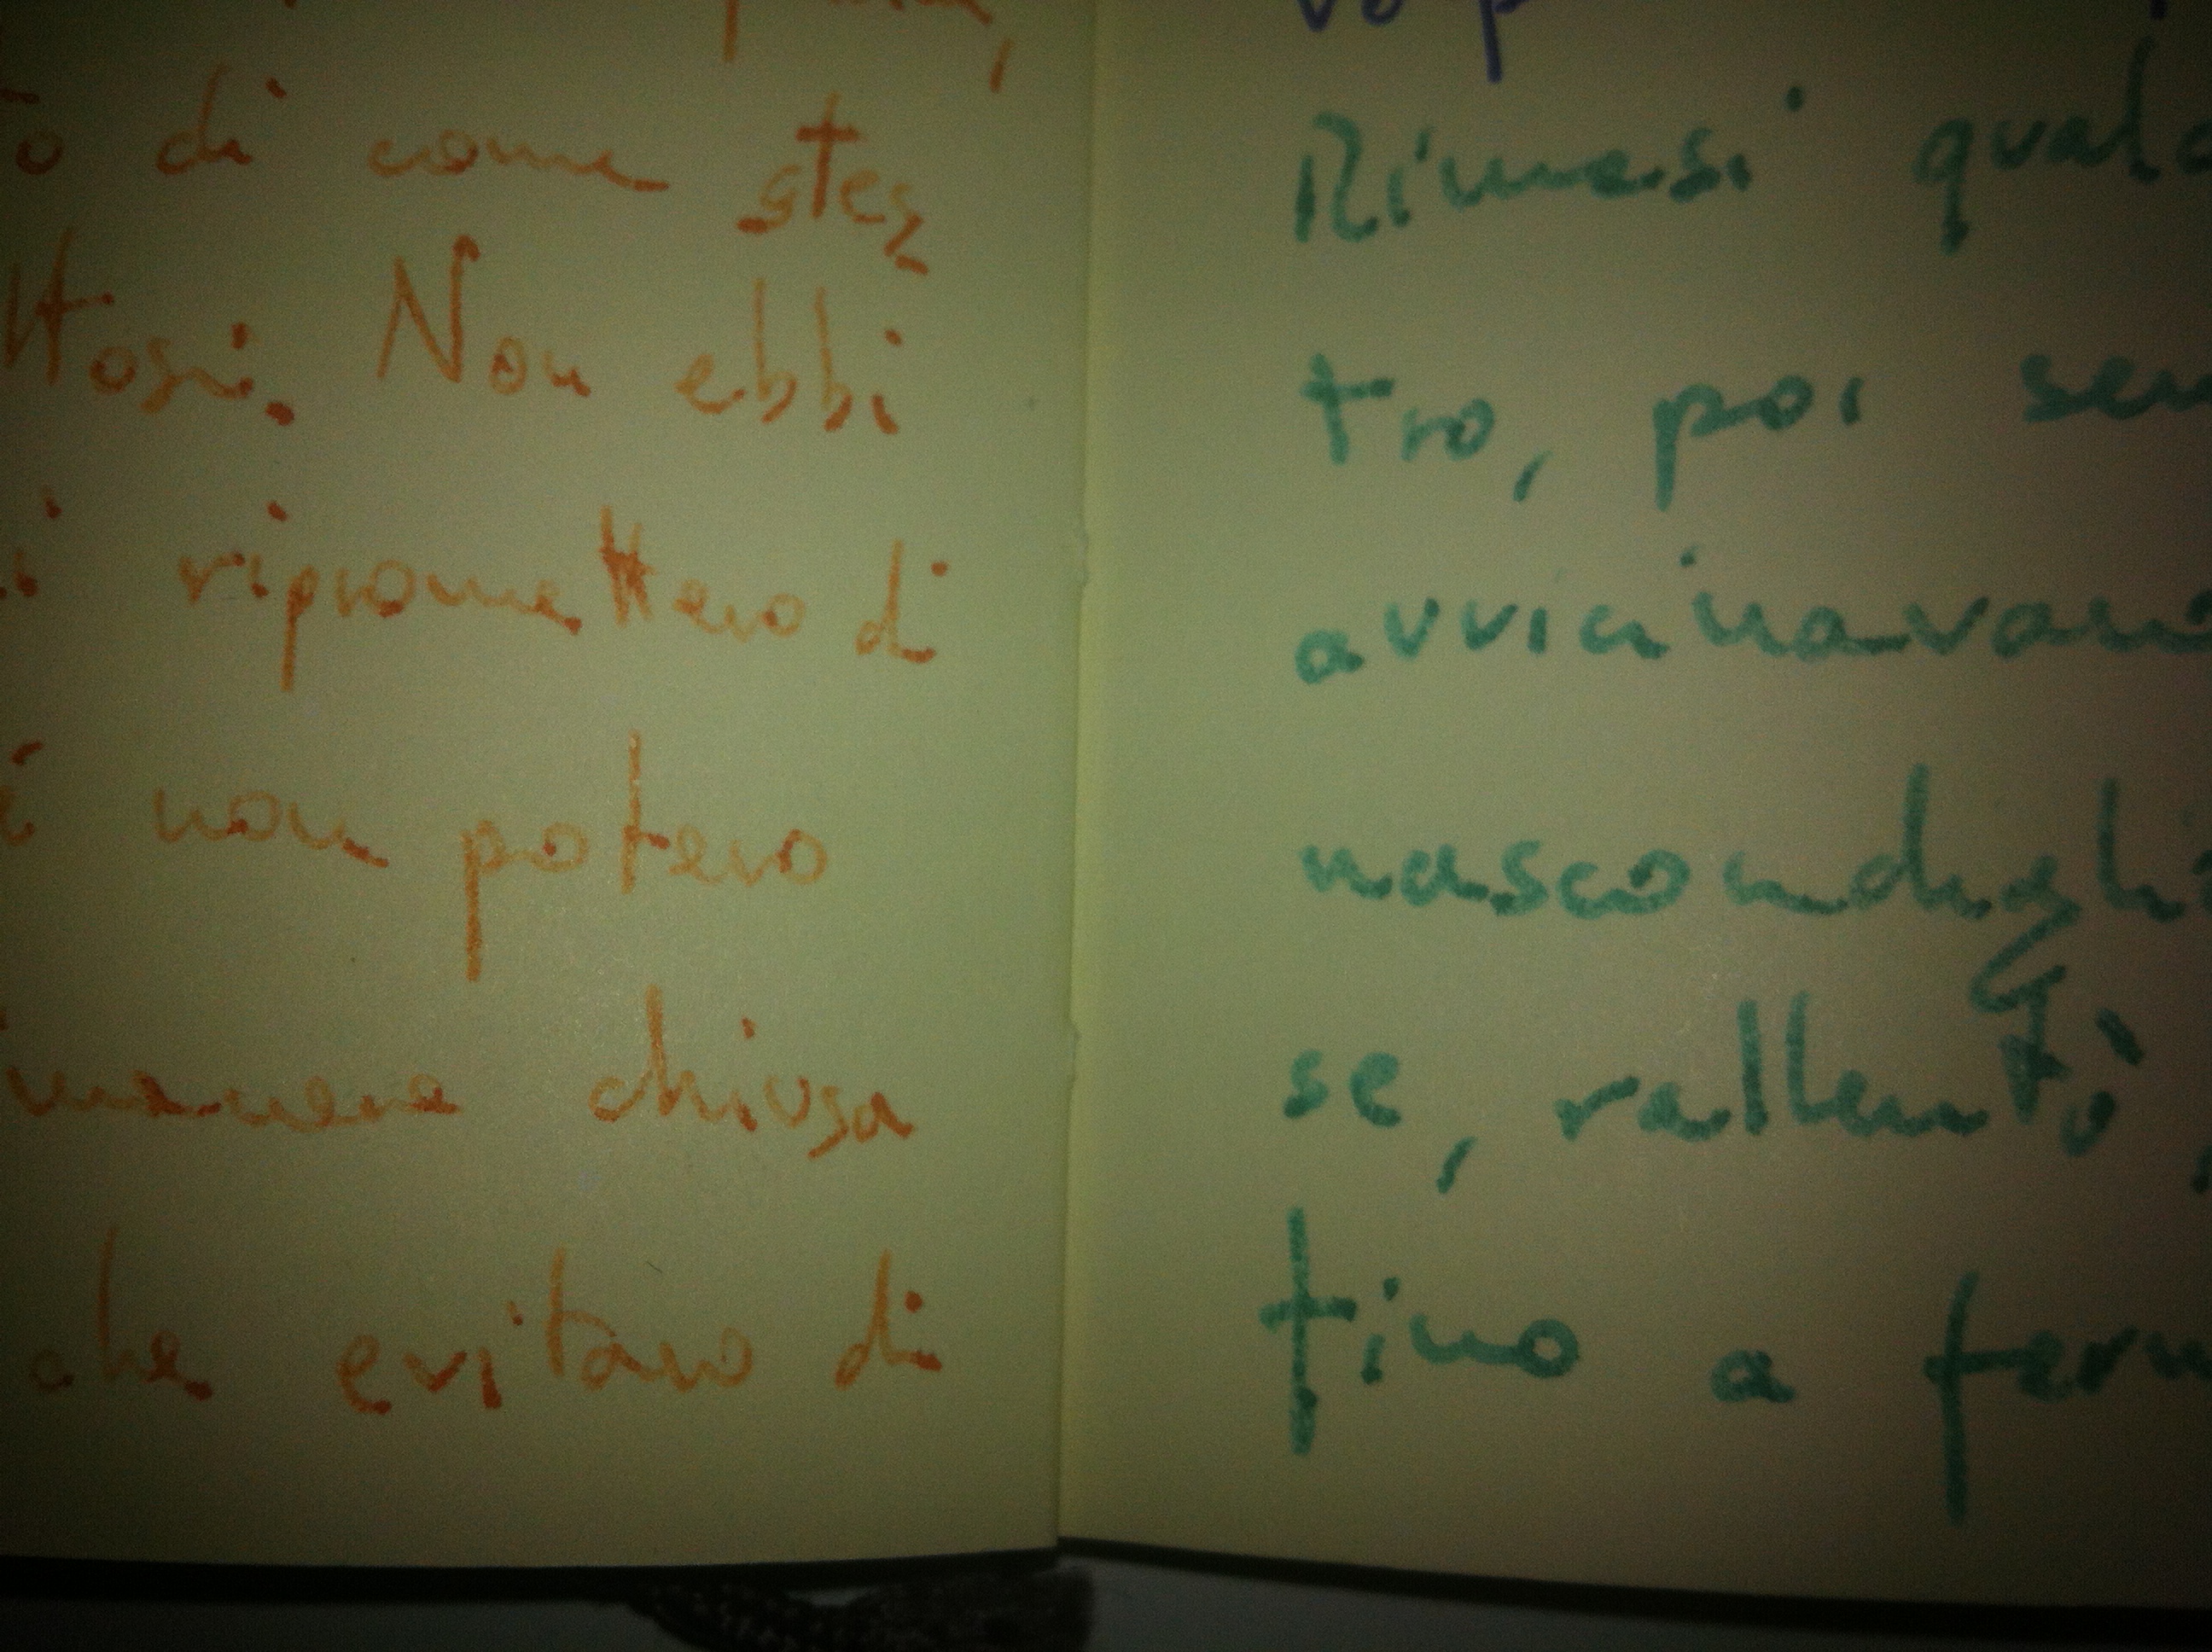 di come stes
ttosi. Non ebbi
i ripromettevo di
non potevo
rimanere chiusa
che evitavo di
Rimasi qual
tro, poi sen
avvicinavano
nascondigli
se, rallentò,
fino a ferm